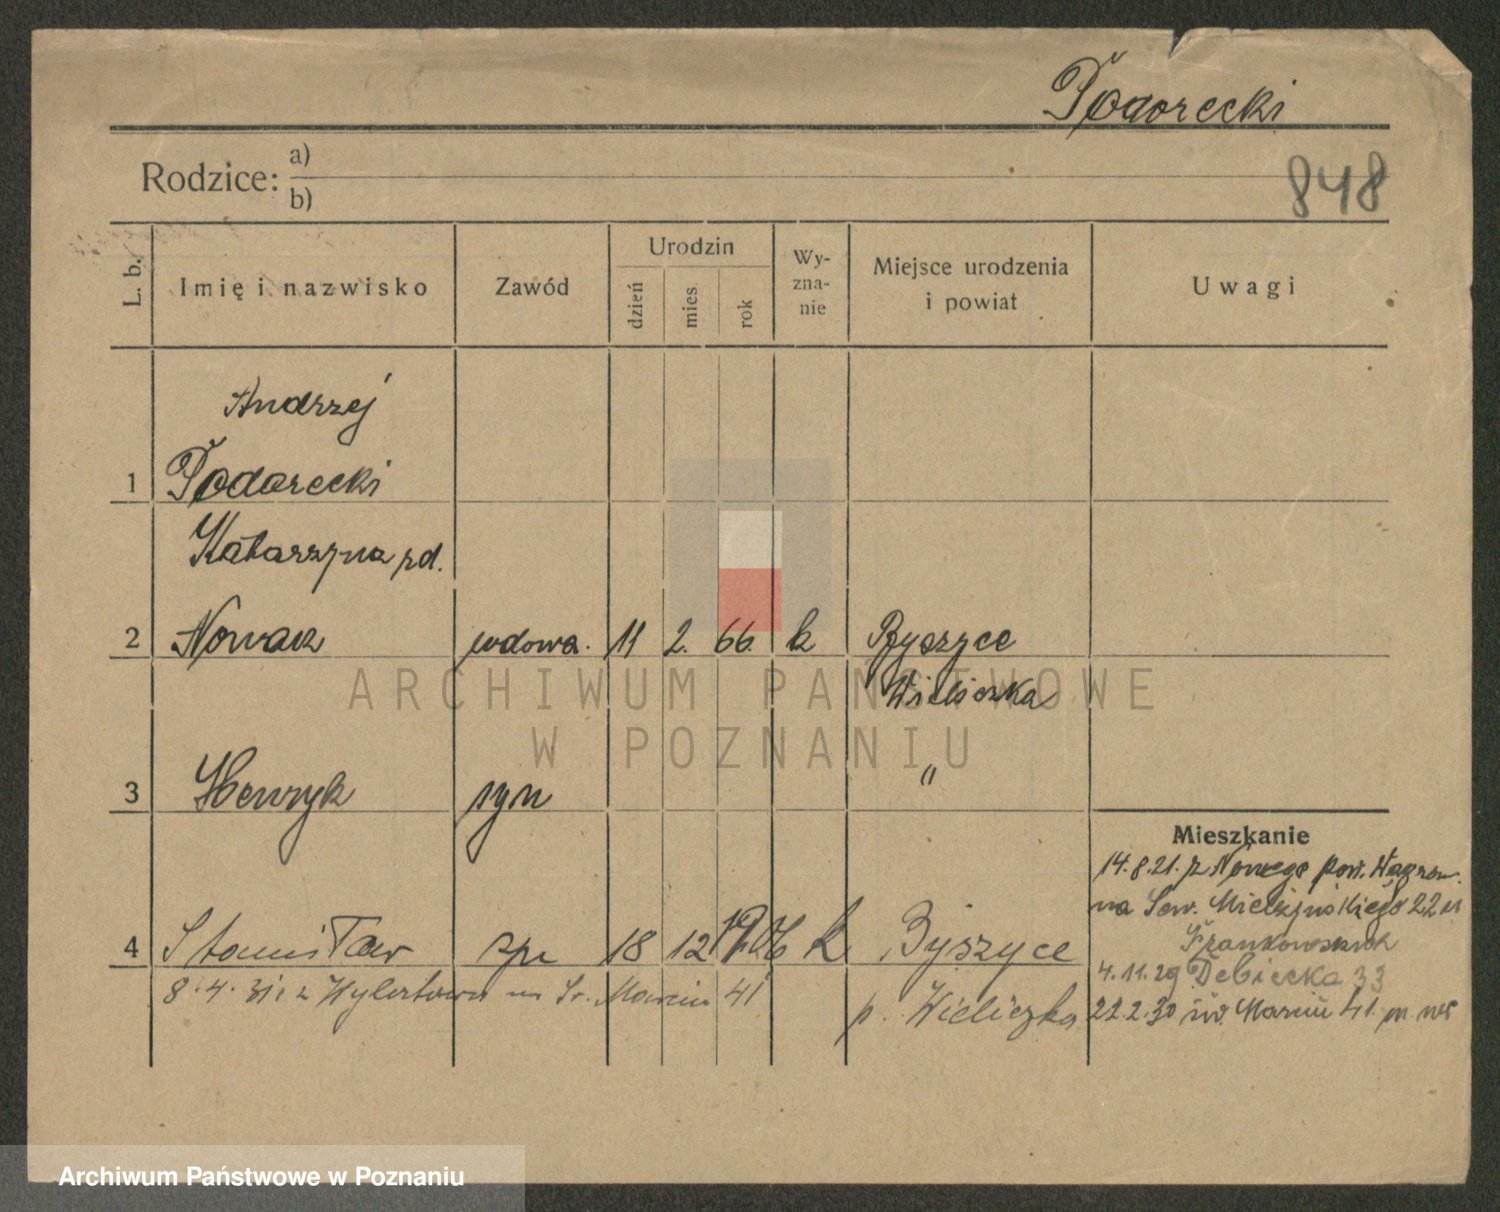 Podorecki
Rodzice: a)
b)
848
L. b.
Imię i nazwisko
Zawód
Urodzin
dzień
mies.
rok
Wy-
zna-
nie
Miejsce urodzenia
i powiat
Uwagi
Andrzej
1 Podorecki
Katarzyna zd.
2 Nowak wdowa. 11 2. 66. k Byszyce
Wieliczka
3 Henryk syn "
Mieszkanie
14.8.21. z Nowego pow. Wągrow.
na Sew. Mielżyńskiego 22 u
4 Stanisław syn 18 12 1906 k Byszyce
4.11.29 Dębiecka 33
8.4.31. z Wylotowa na Św. Marcin 41
p. Wieliczka
22.2.30 św. Marcin 41
ARCHIWUM PAŃSTWOWE
W POZNANIU
Archiwum Państwowe w Poznaniu